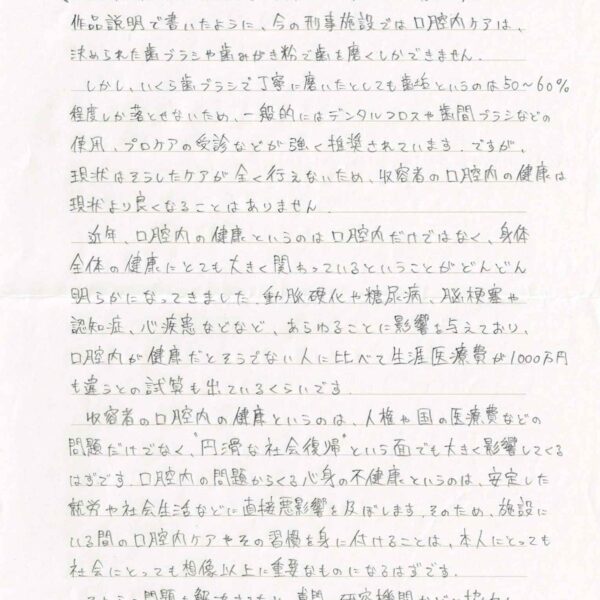 作品説明で書いたように、今の刑事施設では口腔内ケアは、
決められた歯ブラシや歯みがき粉で歯を磨くしかできません.
しかし、いくら歯ブラシで丁寧に磨いたとしても歯垢というのは50〜60%
程度しか落とせないため、一般的にはデンタルフロスや歯間ブラシなどの
使用、プロケアの受診などが強く推奨されています. ですが、
現状はそうしたケアが全く行えないため、収容者の口腔内の健康は
現状より良くなることはありません.
近年、口腔内の健康というのは口腔内だけではなく、身体
全体の健康にとても大きく関わっているということがどんどん
明らかになってきました. 動脈硬化や糖尿病、脳梗塞や
認知症、心疾患などなど、あらゆることに影響を与えており、
口腔内が健康だとそうでない人に比べて生涯医療費が1000万円
も違うとの試算も出ているくらいです.
収容者の口腔内の健康というのは、人権や国の医療費などの
問題だけでなく、"円滑な社会復帰"という面でも大きく影響してくる
はずです. 口腔内の問題からくる心身の不健康というのは、安定した
就労や社会生活などに直接悪影響を及ぼします. そのため、施設に
いる間の口腔内ケアやその習慣を身に付けることは、本人にとっても
社会にとっても想像以上に重要なものになるはずです.